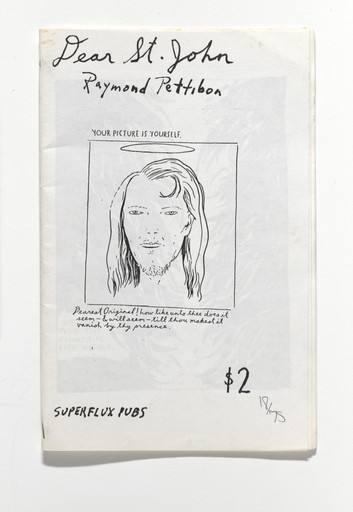 Dear St. John
Raymond Pettibon
YOUR PICTURE IS YOURSELF.
Dearest Original! how like unto thee does it
seem — & will seem — till thou makest it
vanish by thy presence.
$2
SUPERFLUX PUBS